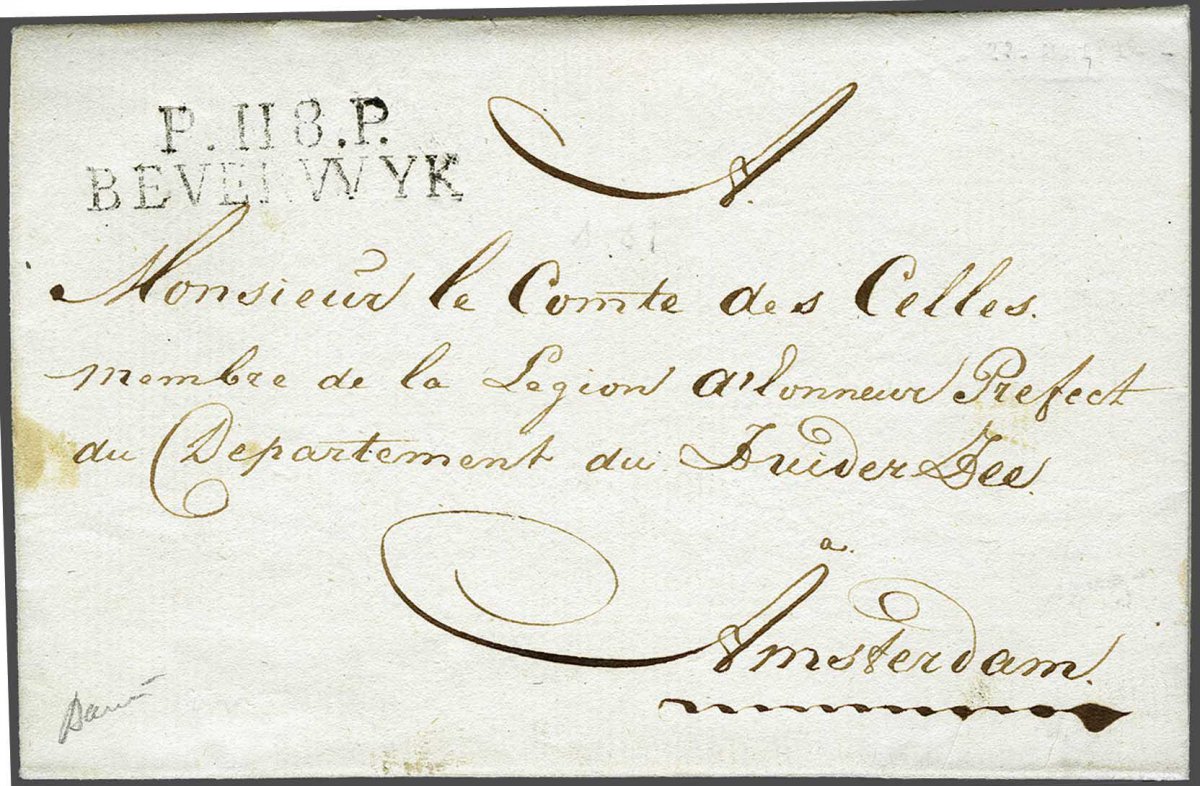 P. 118. P.
BEVERWYK
A.
Monsieur le Comte des Celles.
membre de la Legion d'lonneur Prefect
du Departement du Zuider Zee.
a.
Amsterdam.